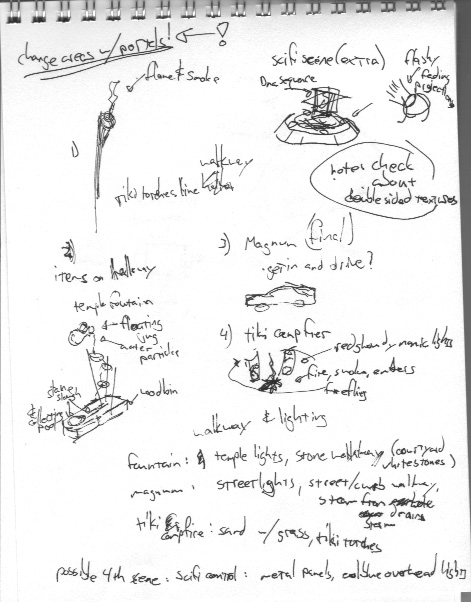 change areas w/ portals! ← !
flame & smoke
1)
walkway
tiki torches line
scifi scene (extra)
One square
flashy
fading projection
note: check
about
double sided textures
2)
items on walkway
temple fountain
floating
jug
water
particles
stone
collecting
pool
3) Magnum (final)
· get in and drive?
4) tiki campfire
red shandy manic lights
fire, smoke, embers
fireflies
walkway & lighting
fountain: temple lights, stone walkway (courtyard
white stones)
magnum: streetlights, street/curb walkway,
steam from
drains
steam
tiki
campfire: sand w/ grass, tiki torches
possible 4th scene: scifi control: metal panels, cool blue overhead lights